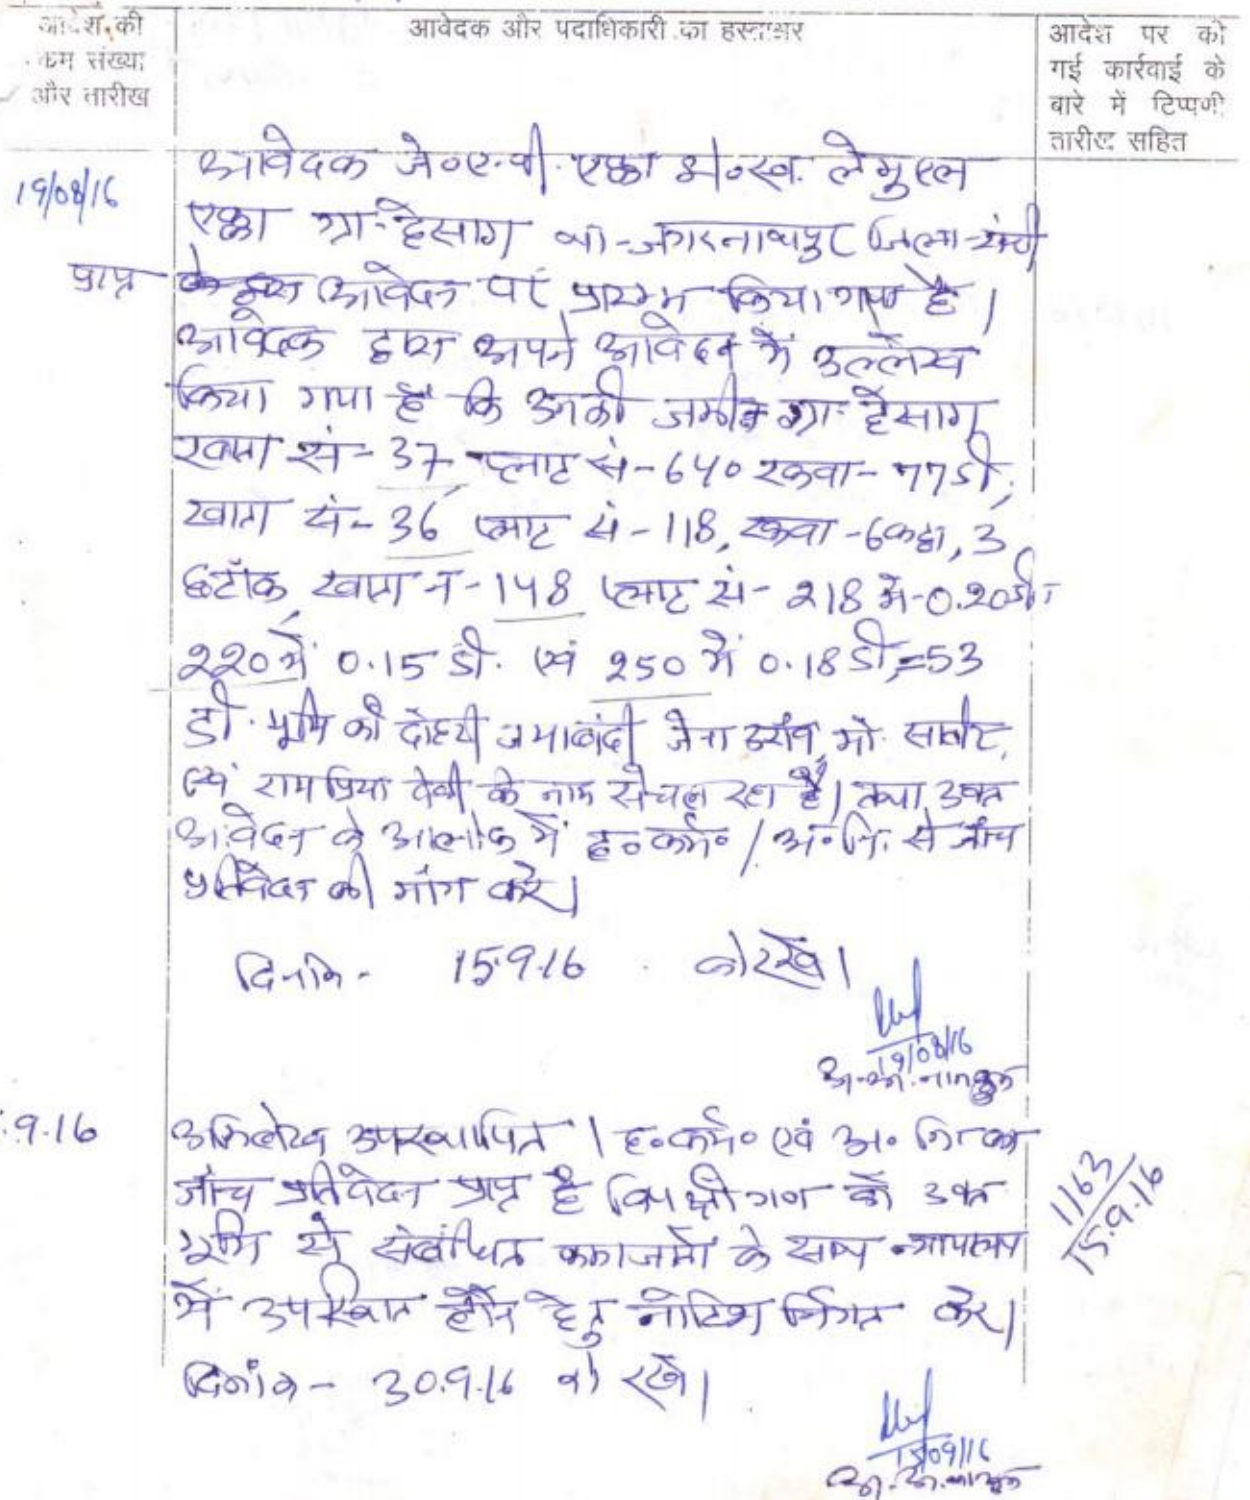 आदेश की
क्रम संख्या
और तारीख
आवेदक और पदाधिकारी का हस्ताक्षर
आदेश पर की
गई कार्रवाई के
बारे में टिप्पणी
तारीख सहित
19/08/16
आवेदक जे०ए.वी. एक्का स्व. लेमुएल
एक्का ग्रा-हेसाग था-जगरनाथपुर जिला-रांची
प्राप्त के द्वारा आवेदन पर प्रारम्भ किया गया है।
आवेदक द्वारा अपने आवेदन में उल्लेख
किया गया है कि उनकी जमीन ग्रा- हेसाग
खाता सं- 37 प्लाट सं-640 रकवा-77डी,
खाता सं- 36 प्लाट सं-118, रकवा-6कट्ठा, 3
छटाँक, खाता न-148 प्लाट सं- 218 में-0.20डी
220 में 0.15 डी. एवं 250 में 0.18 डी,=53
डी. भूमि की दोहरी जमाबंदी उराँव, मो.
एवं राम प्रिया देवी के नाम से चल रहा है। तथा उक्त
आवेदन के आलोक में ह०कर्म०/अं०नि. से जाँच
प्रतिवेदन की मांग करें।
दिनांक- 15.9.16 को रखें।
19/08/16
अ.
9.16
अभिलेख उपस्थापित। ह०कर्म० एवं अं० नि० का
जाँच प्रतिवेदन प्राप्त है विपक्षीगण को उक्त
भूमि से संबंधित कागजातों के साथ न्यायालय
में उपस्थित होने हेतु नोटिश निर्गत करें।
दिनांक- 30.9.16 को रखें।
1163
15.9.16
15/09/16